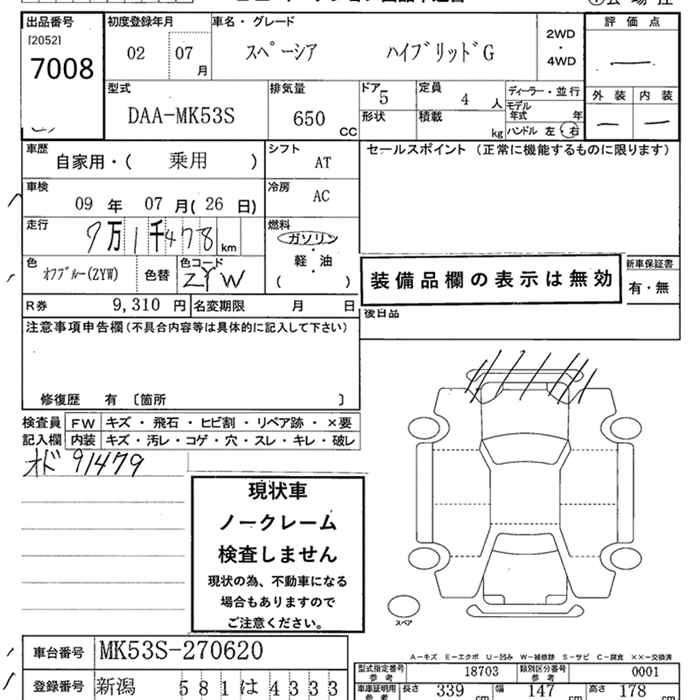 出品番号 初度登録年月 車名・グレード 評価点
[2052]
7008 02 07 月 スペーシア ハイブリッドG 2WD ・ 4WD
型式 排気量 ドア 5 定員 4 人 ディーラー・並行 外装 内装
DAA-MK53S 650 CC 形状 積載 kg モデル年式 年
ハンドル 左・右
車歴 自家用・( 乗用 ) シフト AT セールスポイント (正常に機能するものに限ります)
車検 09 年 07 月( 26 日) 冷房 AC
走行 9万1千478 km 燃料 ガソリン
軽・油
( )
色 オフブルー(ZYW) 色替 色コード ZYW
装備品欄の表示は無効 新車保証書 有・無
R券 9,310 円 名変期限 月 日 後日品
注意事項申告欄(不具合内容等は具体的に記入して下さい)
修復歴 有 〔箇所 〕
検査員 FW キズ・飛石・ヒビ割・リペア跡・×要
記入欄 内装 キズ・汚レ・コゲ・穴・スレ・キレ・破レ
オド 91479
現状車
ノークレーム
検査しません
現状の為、不動車になる
場合もありますので
ご注意ください。
スペア
A-キズ E-エクボ U-凹み W-補修跡 S-サビ C-腐食 ××-交換済
車台番号 MK53S-270620
型式指定番号 参考 18703 類別区分番号 参考 0001
登録番号 新潟 581 は 4333
車庫証明用 参考 長さ 339 cm 幅 147 cm 高さ 178 cm